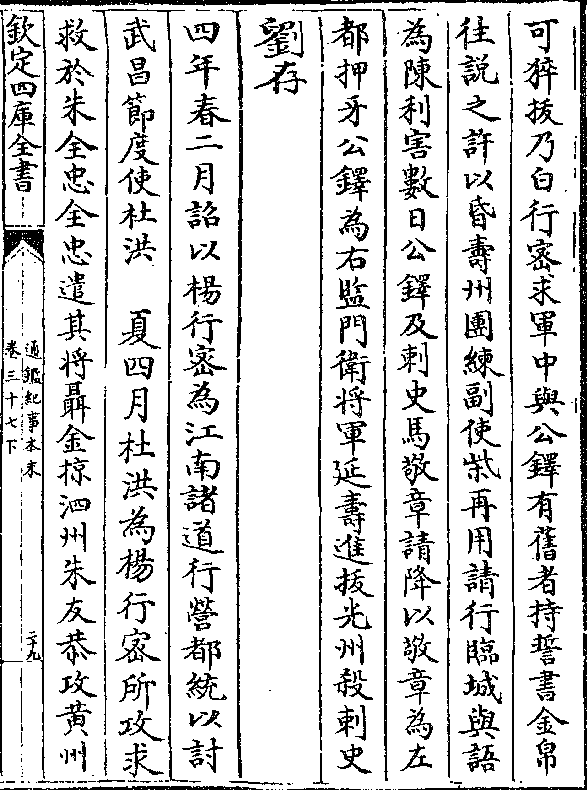 可猝拔乃白行密求軍中與公鐸有舊者持誓書金帛
往說之許以昏壽州團練副使柴再用請行臨城與語
為陳利害數日公鐸及刺史馬敬章請降以敬章為左
都押牙公鐸為右監門衛將軍延壽進拔光州殺刺史
劉存
四年春二月詔以楊行密為江南諸道行營都統以討
武昌節度使杜洪　夏四月杜洪為楊行密所攻求
救於朱全忠全忠遣其將聶金掠泗州朱友恭攻黄州
欽定四庫全書
通鑑紀事本末
卷三十七下
二十九